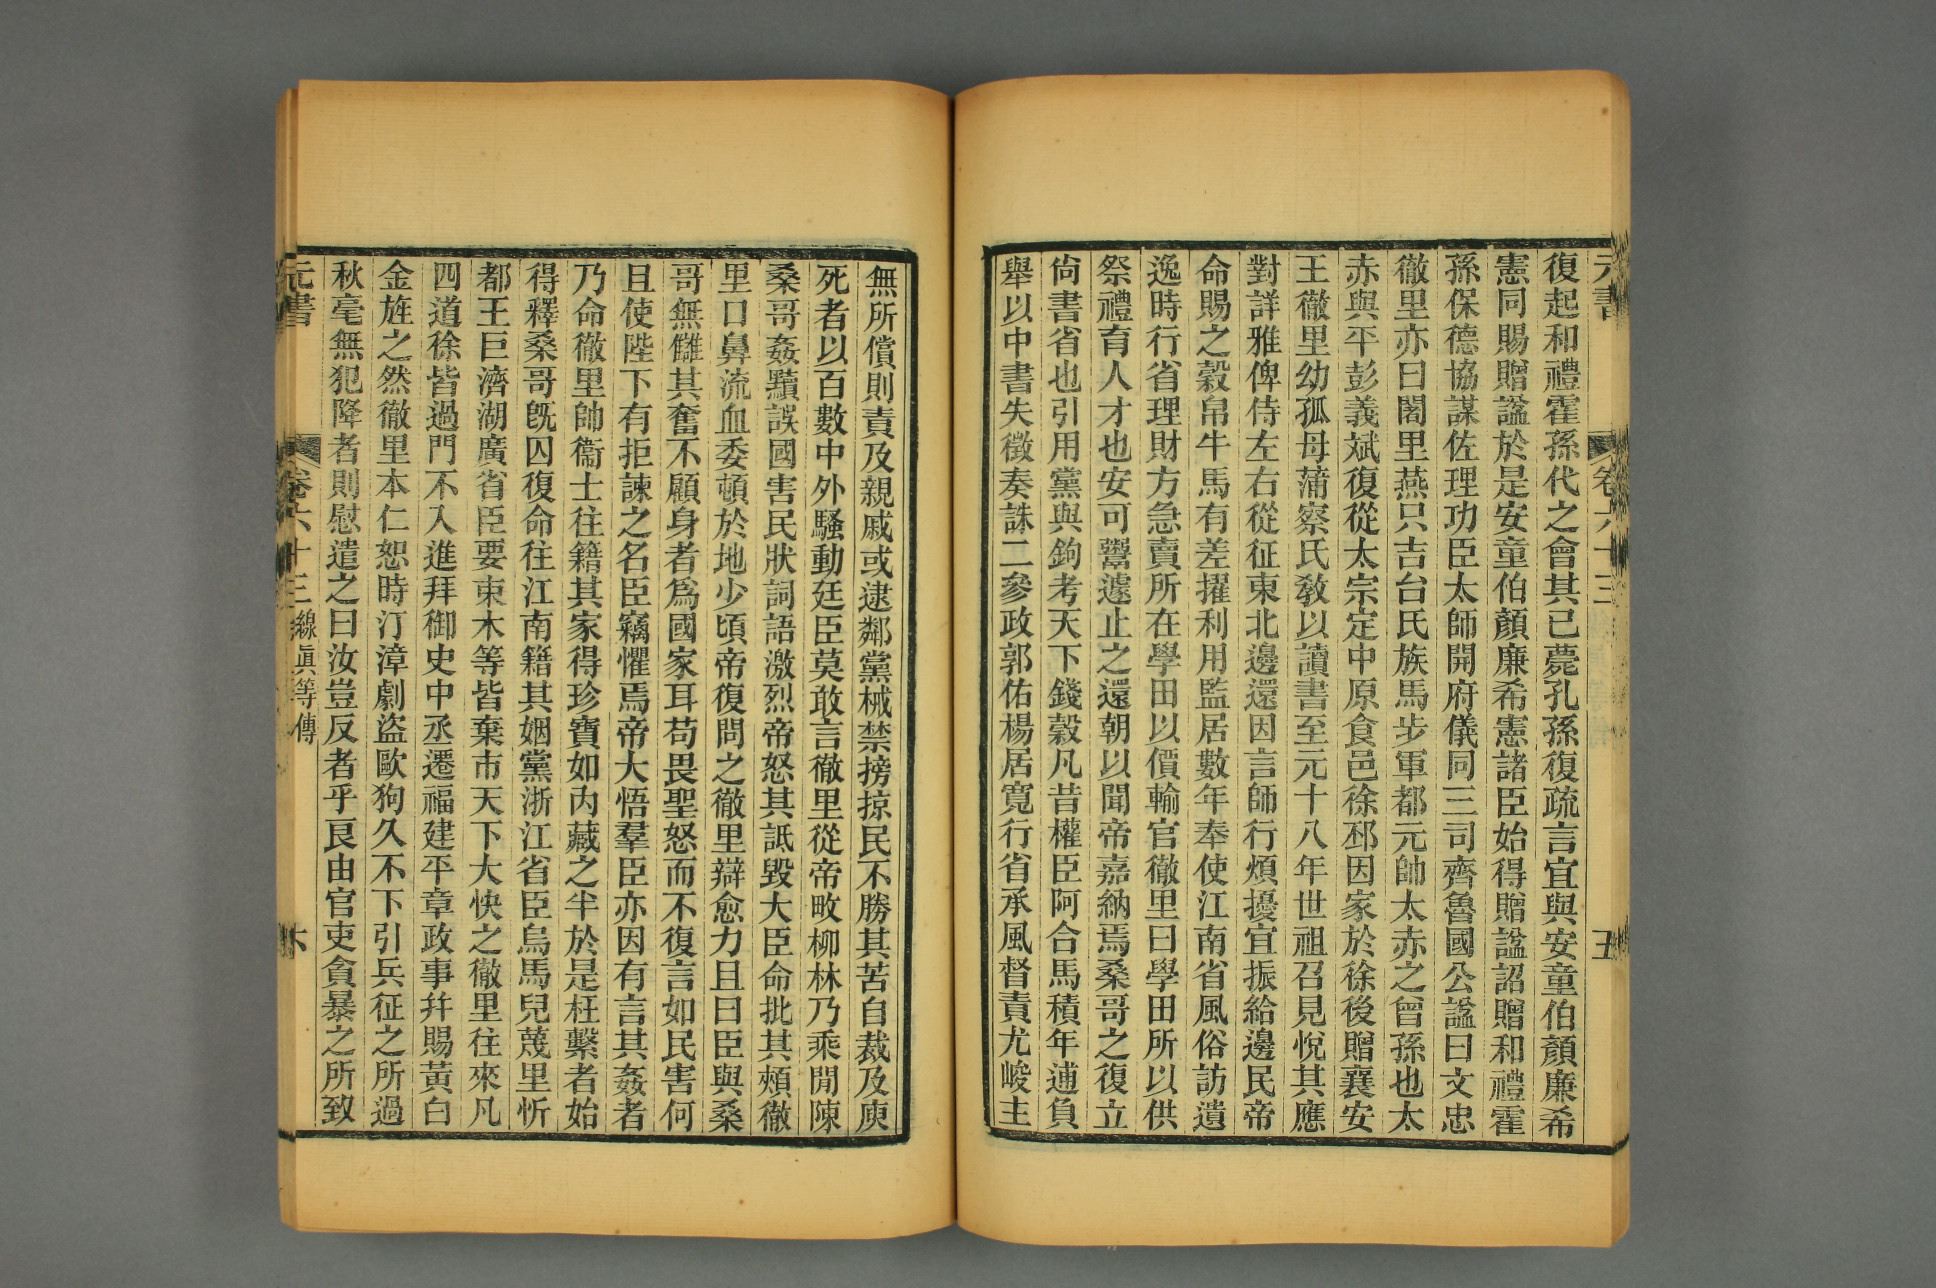 元書
卷六十三
五
復起和禮霍孫代之會其已薨孔孫復疏言宜與安童伯顏廉希
憲同賜贈諡於是安童伯顏廉希憲諸臣始得贈諡詔贈和禮霍
孫保德協謀佐理功臣太師開府儀同三司齊魯國公諡曰文忠
徹里亦曰闍里燕只吉台氏族馬步軍都元帥太赤之曾孫也太
赤與平彭義斌復從太宗定中原食邑徐邳因家於徐後贈襄安
王徹里幼孤母蒲察氏敎以讀書至元十八年世祖召見悅其應
對詳雅俾侍左右從征東北邊還因言師行煩擾宜振給邊民帝
命賜之穀帛牛馬有差擢利用監居數年奉使江南省風俗訪遺
逸時行省理財方急賣所在學田以價輸官徹里曰學田所以供
祭禮育人才也安可鬻遽止之還朝以聞帝嘉納焉桑哥之復立
尙書省也引用黨與鉤考天下錢穀凡昔權臣阿合馬積年逋負
舉以中書失徵奏誅二參政郭佑楊居寬行省承風督責尤峻主
無所償則責及親戚或逮鄰黨械禁搒掠民不勝其苦自裁及庾
死者以百數中外騷動廷臣莫敢言徹里從帝畋柳林乃乘閒陳
桑哥姦贓誤國害民狀詞語激烈帝怒其詆毀大臣命批其頰徹
里口鼻流血委頓於地少頃帝復問之徹里辯愈力且曰臣與桑
哥無讎其奮不顧身者爲國家耳苟畏聖怒而不復言如民害何
且使陛下有拒諫之名臣竊懼焉帝大悟羣臣亦因有言其姦者
乃命徹里帥衞士往籍其家得珍寶如內藏之半於是枉繫者始
得釋桑哥旣囚復命往江南籍其姻黨浙江省臣烏馬兒蔑里忻
都王巨濟湖廣省臣要束木等皆棄市天下大快之徹里往來凡
四道徐皆過門不入進拜御史中丞遷福建平章政事幷賜黃白
金旌之然徹里本仁恕時汀漳劇盜歐狗久不下引兵征之所過
秋毫無犯降者則慰遣之曰汝豈反者乎良由官吏貪暴之所致
元書
卷六十三
線眞等傳
六